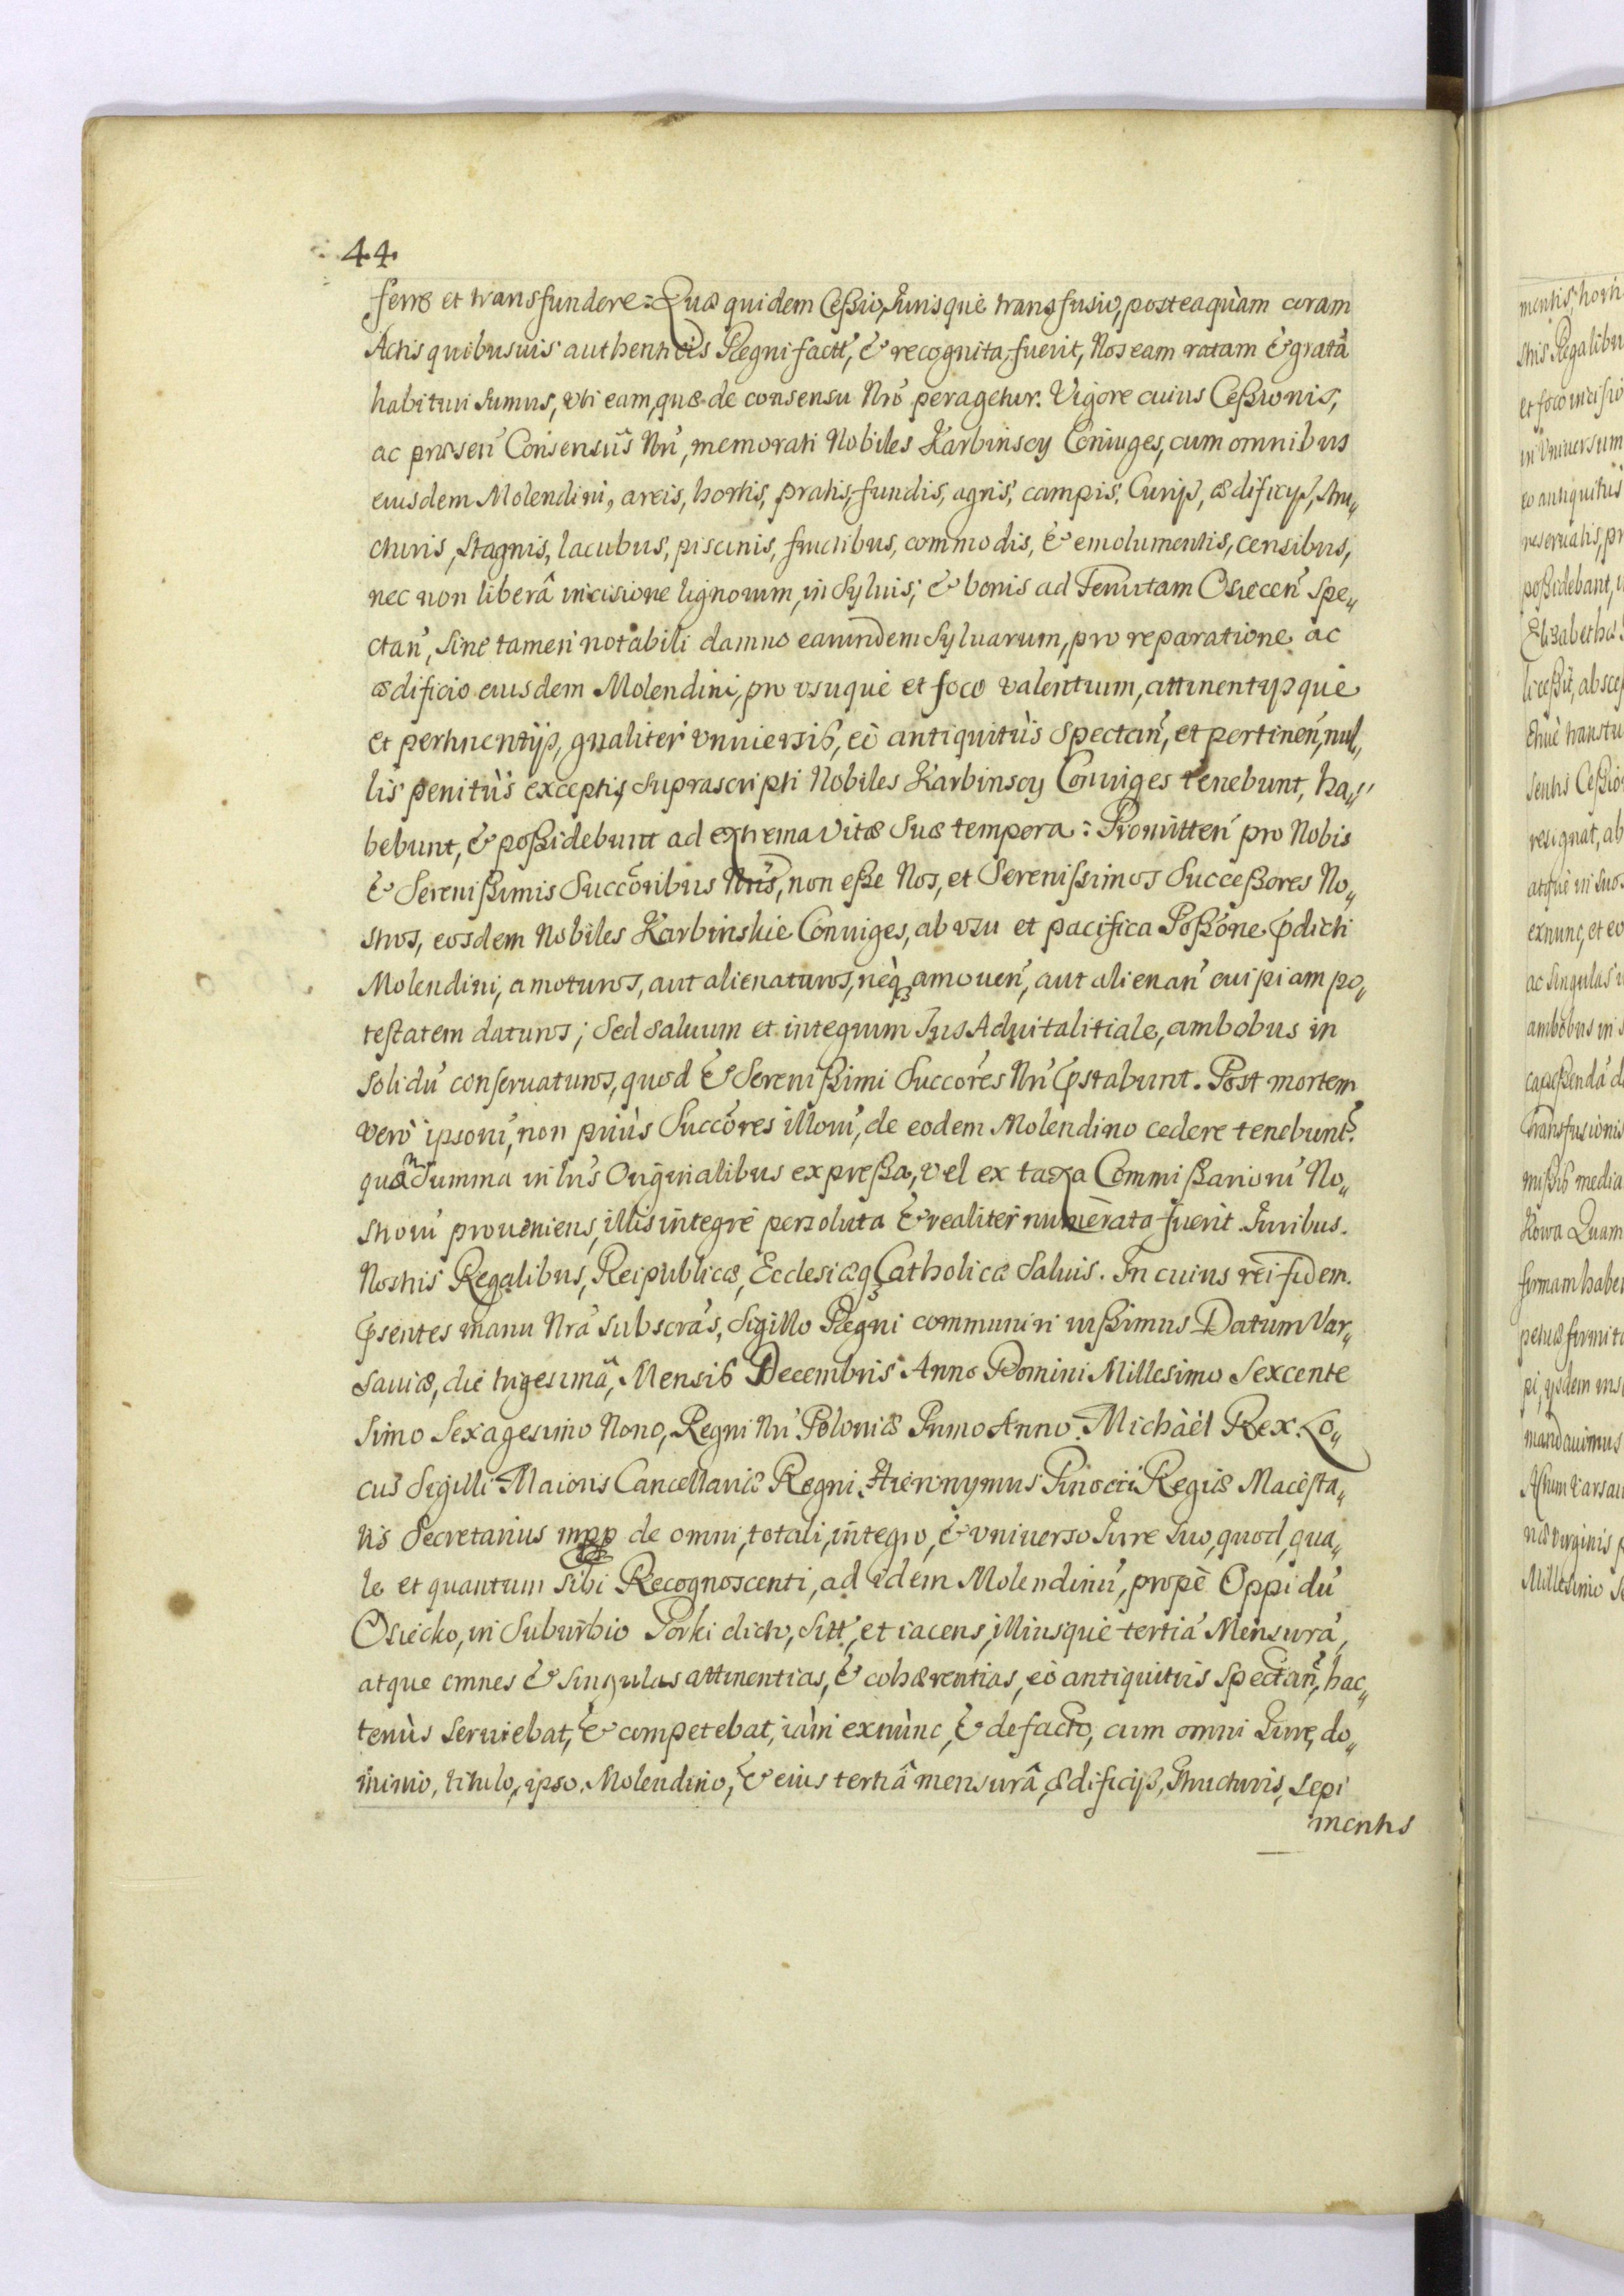 44.
ferre et transfundere: Quæ quidem Cessio, Jurisque transfusio, posteaquàm coram
Actis quibusuis authenticis Regni factt, & recognita fuerit, Nos eam ratam & gratã
habituri sumus, vti eam, quæ de consensu Nrõ peragetur. Vigore cuius Cessionis,
ac præseñ Consensũs Nrĩ, memorati Nobiles Karbinscy Coniuges, cum omnibus
eiusdem Molendini, areis, hortis, pratis, fundis, agris, campis, Curijs, ædificijs, stru„
cturis, stagnis, lacubus, piscinis, fructibus, commodis, & emolumentis, censibus,
nec non liberâ incisione lignorum, in syluis, & bonis ad Tenutam Osiecen̄ Spe„
ctan̄, sine tamen notabili damno earundem syluarum, pro reparatione ac
ædificio eiusdem Molendini, pro vsuque et foco valentium, attinentijsque
et pertinentijs, qualiter vniuersis, eò antiquitùs Spectan̄, et pertinen̄, nul„
lis penitùs exceptis, suprascripti Nobiles Karbinscy Coniuges tenebunt, ha„
bebunt, & possidebunt ad extrema vitæ suæ tempora: Promitten̄ pro Nobis
& Serenissimis Succõribus Nrĩs, non esse Nos, et Serenissimos Successores No„
stros, eosdem Nobiles Karbinskie Coniuges, ab vsu et pacifica Possõne prædicti
Molendini, amoturos, aut alienaturos, neq₃ amouen̄, aut alienan̄ cuipiam po„
testatem daturos; Sed saluum et integrum Jus Aduitalitiale, ambobus in
solidũ conseruaturos, quod & Serenissimi Succõres Nrĩ præstabunt. Post mortem
verò ipsorũ, non priùs Succõres illorũ, de eodem Molendino cedere tenebunt̃,
quàm Summa in Lrĩs Originalibus expressa, vel ex taxa Commissariorũ No„
strorũ proueniens, illis integrè persoluta & realiter numèrata fuerit. Juribus
Nostris Regalibus, Reipublicæ, Ecclesiæq₃ Catholicæ saluis. In cuius rei fidem
præsentes manu Nrã subscrãs, Sigillo Regni communiri iussimus. Datum Var„
sauiæ, die trigesimâ, Mensis Decembris Anno Domini Millesimo Sexcente
simo Sexagesimo Nono, Regni Nrĩ Poloniæ Primo Anno. Michàél Rex. Lo„
cus Sigilli Maioris Cancellariæ Regni. Hieronymus Pinocci Regiæ Maiesta„
tis Secretarius mpp de omni, totali, integro, & vniuerso Jure suo, quod, qua„
le et quantum Sibi Recognoscenti, ad idem Molendinũ, propè Oppidũ
Osiecko, in Suburbio Porki dicto, sitt, et iacens, illiusque tertiã Mensurã,
atque omnes & singulas attinentias, & cohærentias, eò antiquitùs Spectan̄, hac„
tenùs seruiebat, & competebat, iàm exnùnc, & de facto, cum omni Jure, do„
minio, titulo, ipso Molendino, & eius tertiâ mensurâ, ædificijs, structuris, sepi
mentis